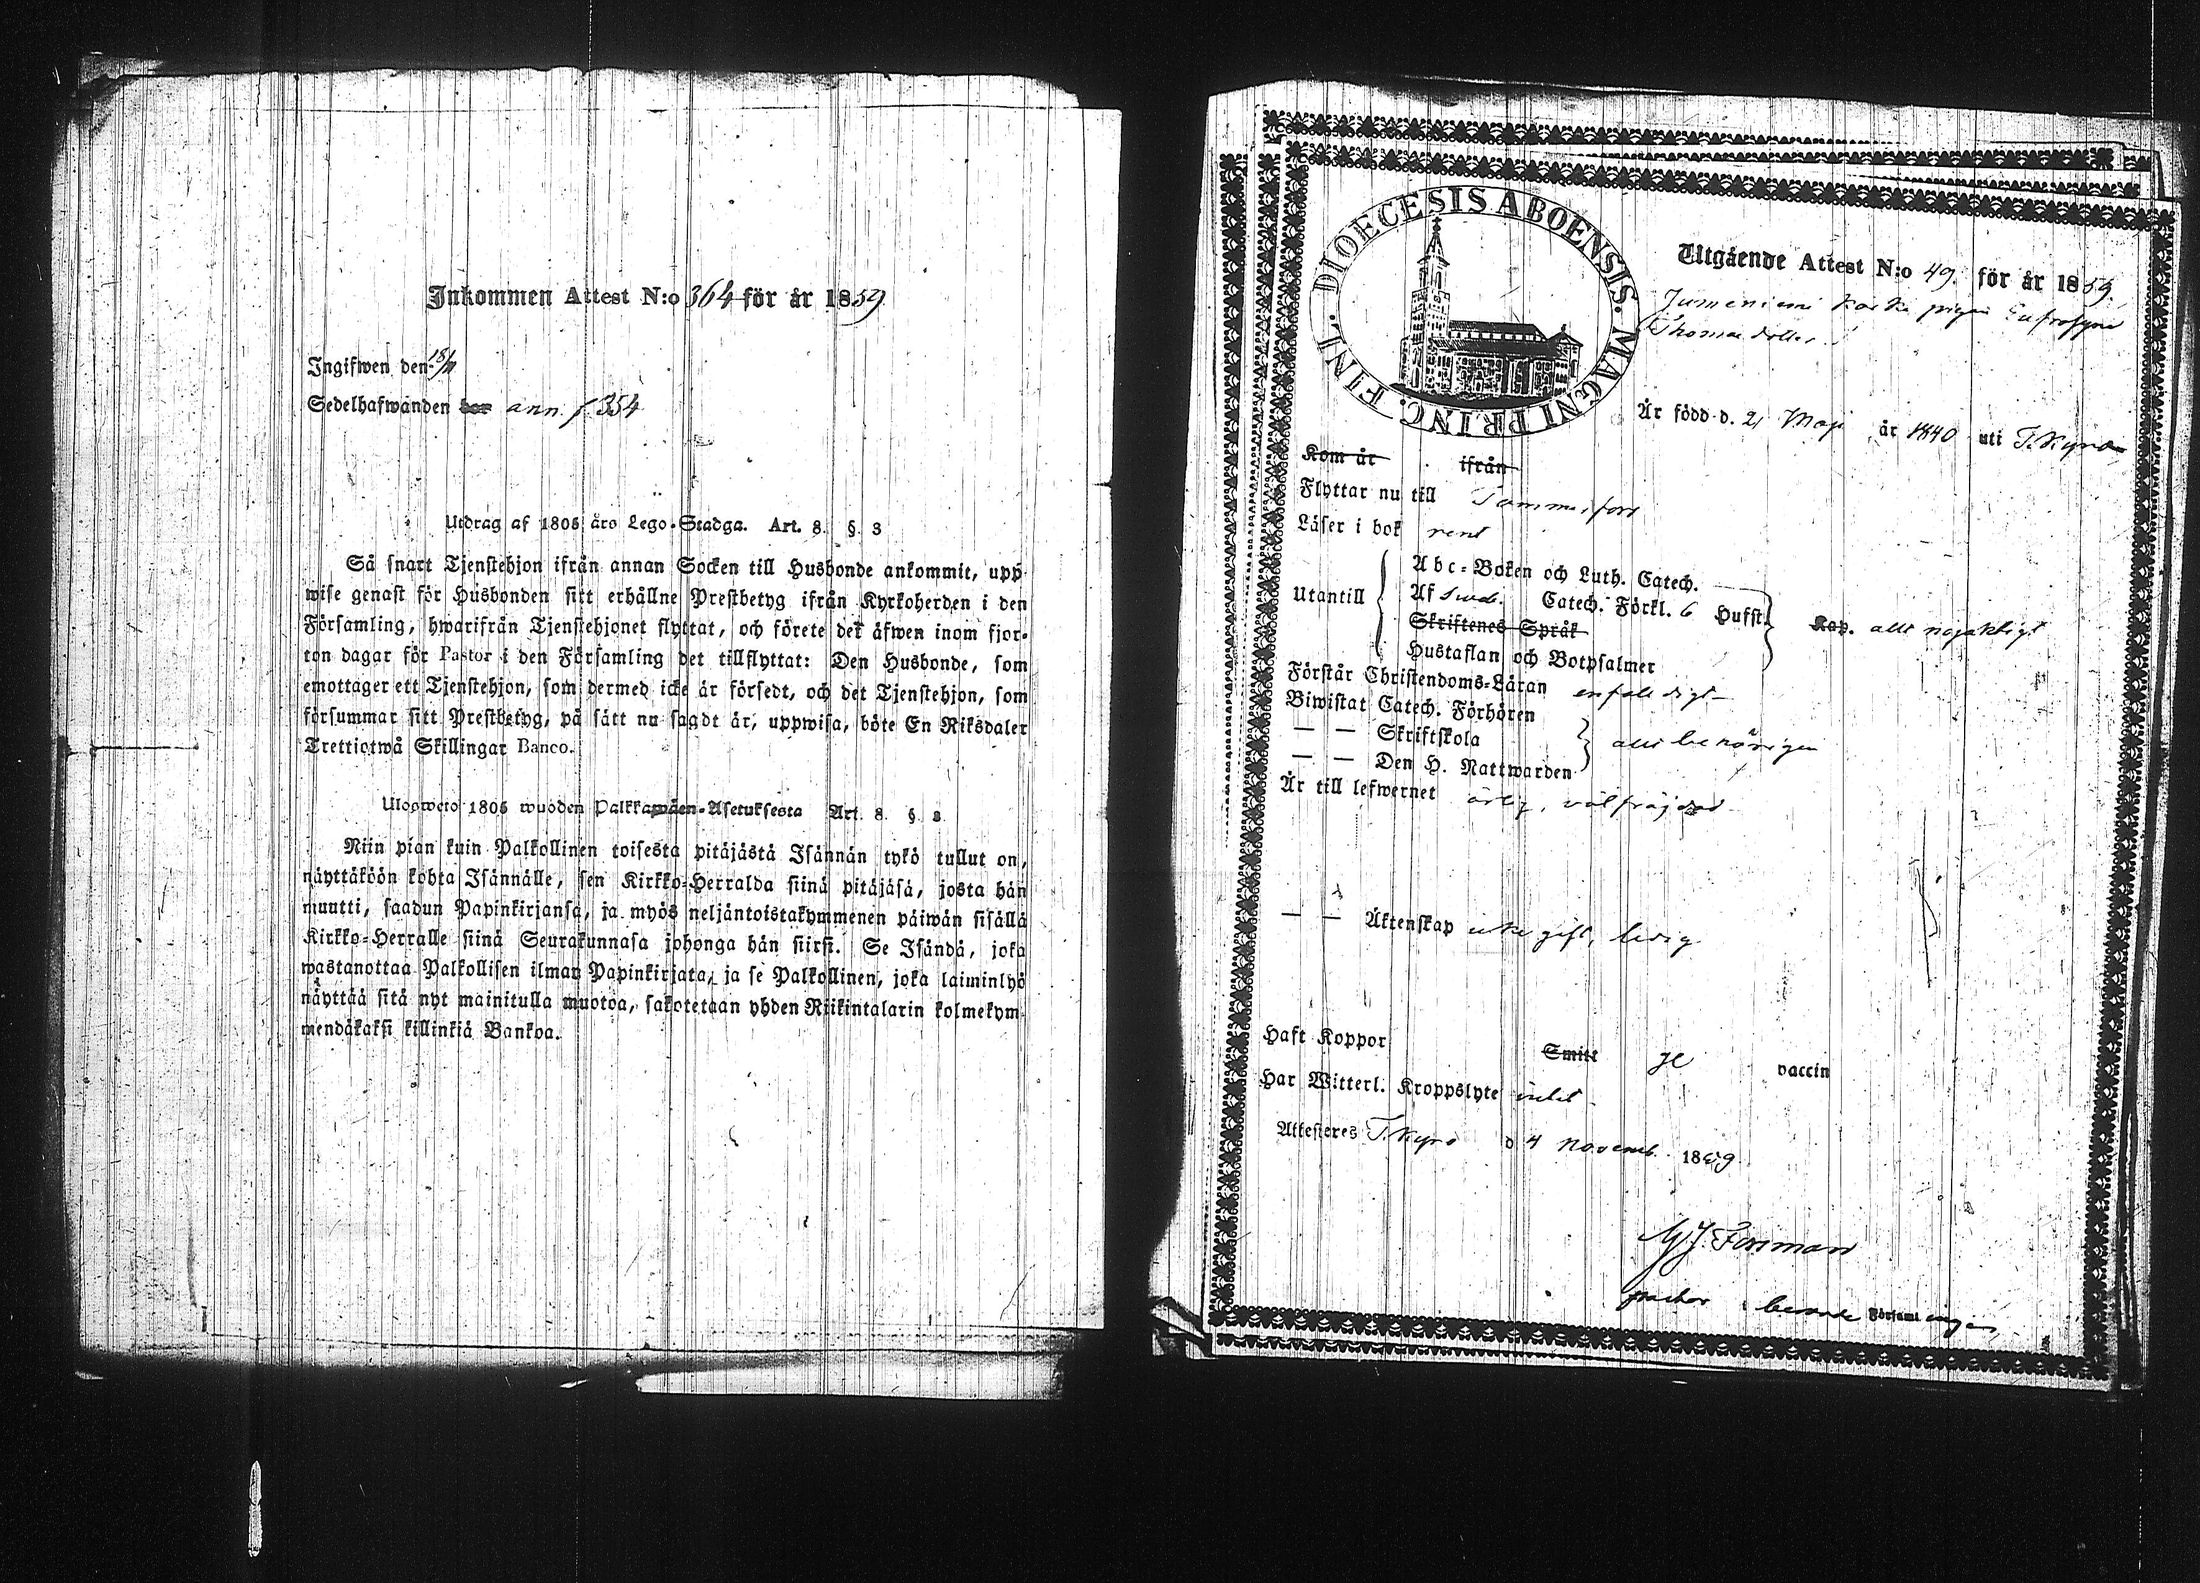 Inkommen Attest N:o 364 för år 1859
Ingifwen den 18/11
Sedelhafwanden bor ann. f. 354
Utdrag af 1805 års Lego-Stadga. Art. 8. §. 3
Så snart Tjenstehjon ifrån annan Socken till Husbonde ankommit, upp-
wise genast för Husbonden sitt erhållne Prestbetyg ifrån Kyrkoherden i den
Församling, hwarifrån Tjenstehjonet flyttat, och förete det äfwen inom fjor-
ton dagar för Pastor i den Församling det tillflyttat: Den Husbonde, som
emottager ett Tjenstehjon, som dermed icke är försedt, och det Tjenstehjon, som
försummar sitt Prestbetyg, på sätt nu sagdt är, uppwisa, böte En Riksdaler
Trettiotwå Skillingar Banco.
Ulosweto 1805 wuoden Palkkawäen-Asetuksesta Art. 8. §. 3
Niin pian kuin Palkollinen toisesta pitäjästä Isännän tykö tullut on,
näyttäköön kohta Isännälle, sen Kirkko-Herralda siinä pitäjäsä, josta hän
muutti, saadun Papinkirjansa, ja myös neljäntoistakymmenen päiwän sisällä
Kirkko-Herralle siinä Seurakunnasa johonga hän siirsi. Se Isändä, joka
wastanottaa Palkollisen ilman Papinkirjata, ja se Palkollinen, joka laiminlyö
näyttää sitä nyt mainitulla muotoa, sakotetaan yhden Riikintalarin kolmekym-
mendäkaksi killinkiä Bankoa.
DIOECESIS ABOENSIS. MAGNI PRINC. FINL.
Utgående Attest N:o 49. för år 1859.
Jumeniemi Karke pigan Eufrosyne
Thomasdotter
Är född d. 21 Maji år 1840 uti T.Kyro
Kom år ifrån
Flyttar nu till Tammerfors
Läser i bok rent
Abc-Boken och Luth. Catech.
Utantill Af Sweb. Catech. Förkl. 6 Hufst. Kap. allt nöjaktigt
Skriftenes Språk
Hustaflan och Botpsalmer
Förstår Christendoms-Läran enfaldigt
Biwistat Catech. Förhören
— — Skriftskola allt behörigen
— — Den H. Nattwarden
Är till lefwernet ärlig, välfräjdad
— — Äktenskap icke gift, ledig
Haft Koppor Smitt ge vaccin
Har Witterl. Kroppslyte intet
Attesteres T.Kyro d 4 Novemb. 1859
Forsman
pastor i berörde Församlingen